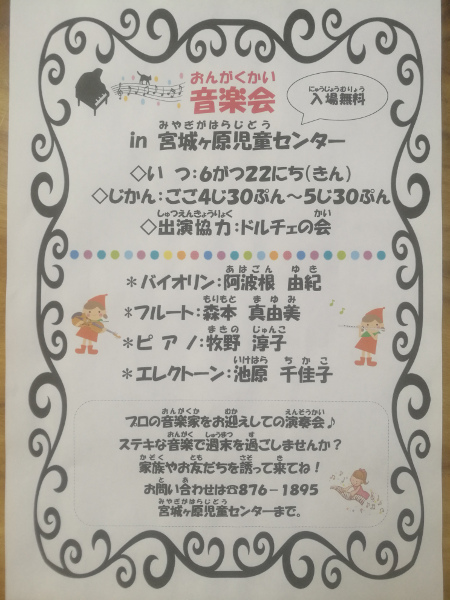 おんがくかい
音楽会
にゅうじょうむりょう
入場無料
みやぎがはらじどう
in 宮城ヶ原児童センター
◇い つ:6がつ22にち(きん)
◇じかん:ごご4じ30ぷん～5じ30ぷん
しゅつえんきょうりょく かい
◇出演協力:ドルチェの会
あはごん ゆき
＊バイオリン:阿波根 由紀
もりもと まゆみ
＊フルート:森本 真由美
まきの じゅんこ
＊ピアノ:牧野 淳子
いけはら ちかこ
＊エレクトーン:池原 千佳子
おんがくか むか えんそうかい
プロの音楽家をお迎えしての演奏会♪
おんがく しゅうまつ す
ステキな音楽で週末を過ごしませんか？
かぞく とも さそ き
家族やお友だちを誘って来てね！
と あ
お問い合わせは☎876－1895
宮城ヶ原児童センターまで。
みやぎがはらじどう